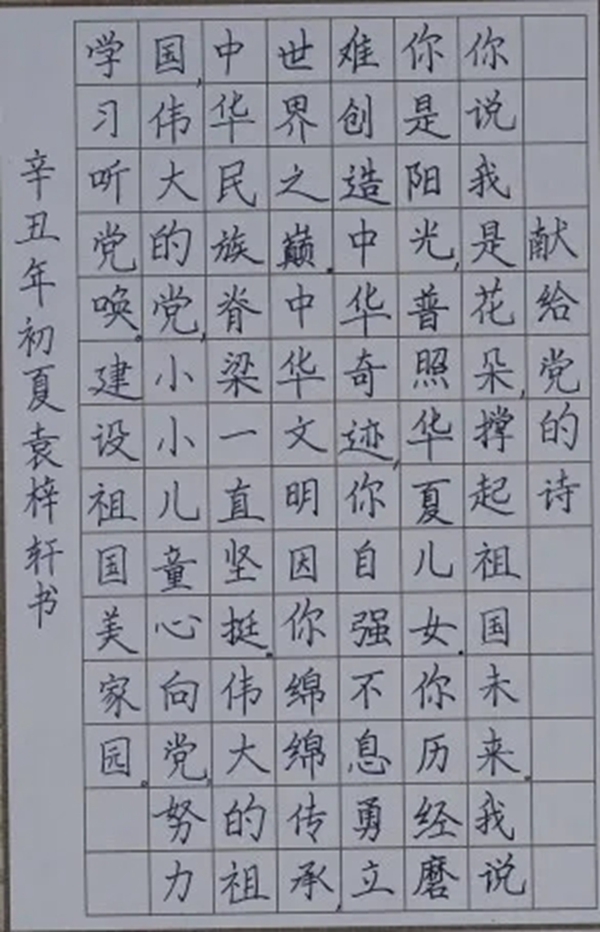 献给党的诗
你说我是花朵,撑起祖国未来。我说
你是阳光,普照华夏儿女。你历经磨
难创造中华奇迹,你自强不息勇立
世界之巅。中华文明因你绵绵传承,
中华民族脊梁一直坚挺。伟大的祖
国,伟大的党,小小儿童心向党,努力
学习听党唤。建设祖国美家园。
辛丑年初夏袁梓轩书